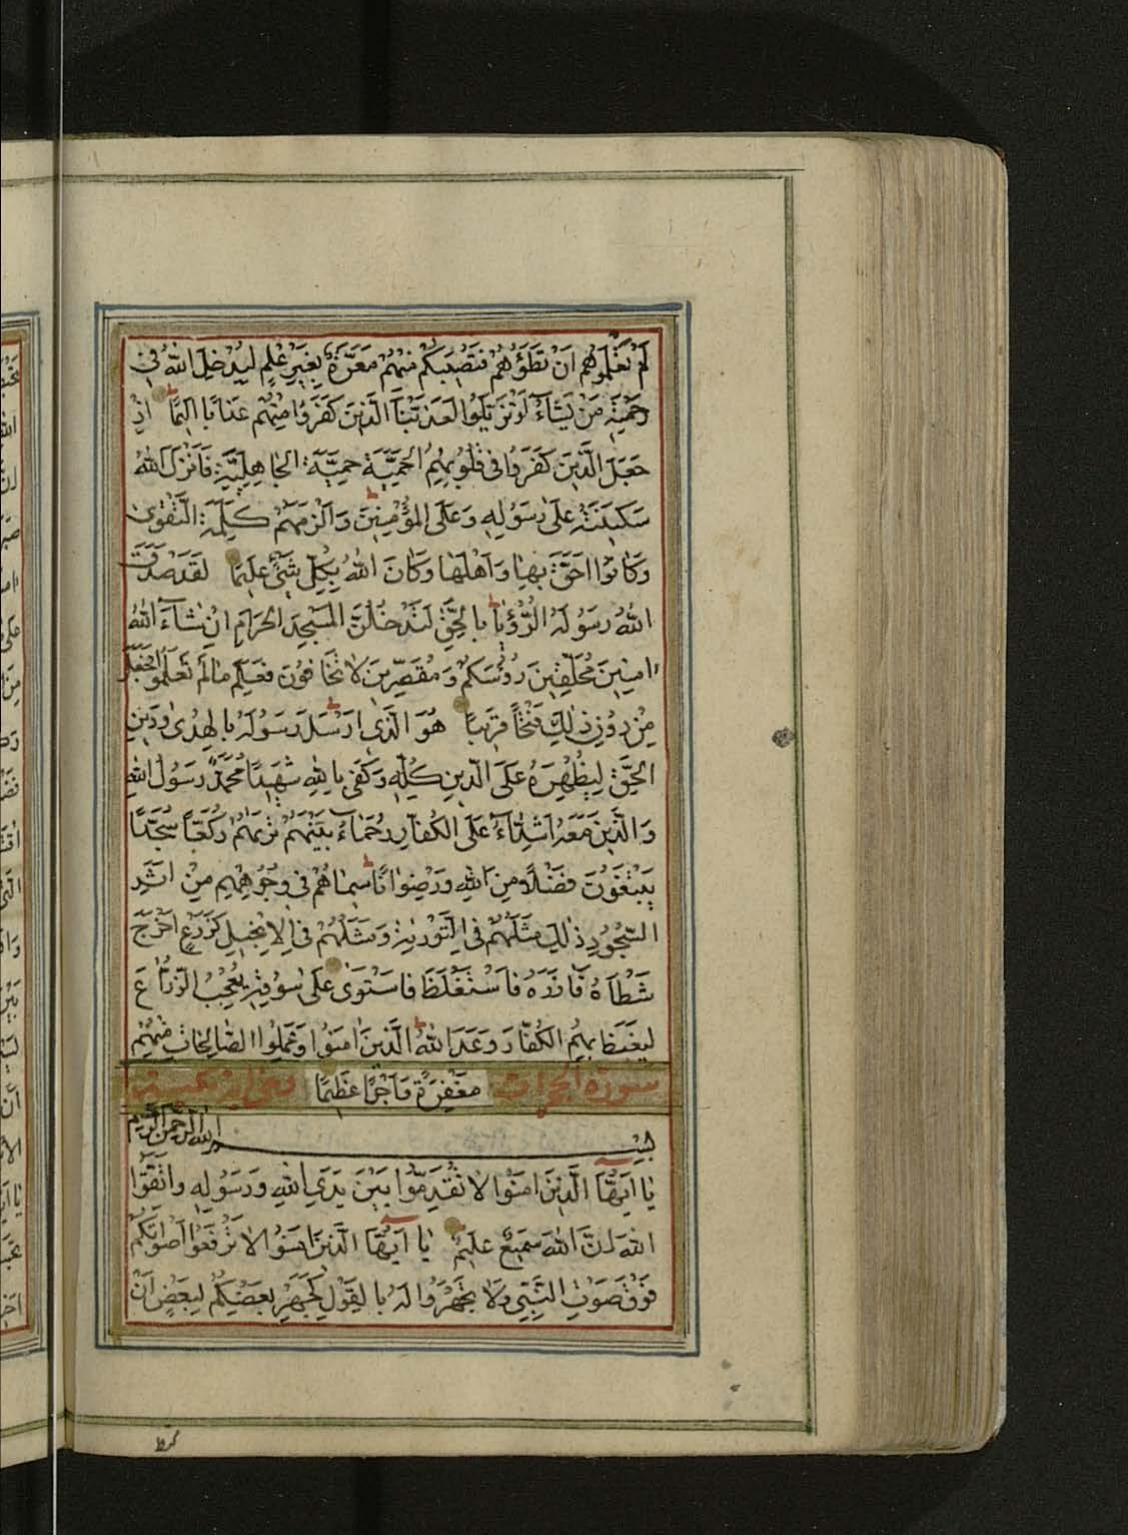 لَمْ تَعْلَمُوهُم اَنْ تَطَؤُهُمْ فَتُصِيبَكُمْ مِنْهُمْ مَعَرَّةٌ بِغَيْرِ عِلْمٍ لِيُدْخِلَ اللّٰهُ فِي
رَحْمَتِهِ مَنْ يَشَاءُ لَوْ تَزَيَّلُوا لَعَذَّبْنَا الَّذِينَ كَفَرُوا مِنْهُمْ عَذَابًا اَلِيمًا اِذْ
جَعَلَ الَّذِينَ كَفَرُوا فِي قُلُوبِهِمُ الْحَمِيَّةَ حَمِيَّةَ الْجَاهِلِيَّةِ فَاَنْزَلَ اللّٰهُ
سَكِينَتَهُ عَلَى رَسُولِهِ وَعَلَى الْمُؤْمِنِينَ وَاَلْزَمَهُمْ كَلِمَةَ التَّقْوٰى
وَكَانُوا اَحَقَّ بِهَا وَاَهْلَهَا وَكَانَ اللّٰهُ بِكُلِّ شَيْءٍ عَلِيمًا لَقَدْ صَدَقَ
اللّٰهُ رَسُولَهُ الرُّؤْيَا بِالْحَقِّ لَتَدْخُلُنَّ الْمَسْجِدَ الْحَرَامَ اِنْ شَاءَ اللّٰهُ
اٰمِنِينَ مُحَلِّقِينَ رُؤُسَكُمْ وَمُقَصِّرِينَ لَا تَخَافُونَ فَعَلِمَ مَا لَمْ تَعْلَمُوا فَجَعَلَ
مِنْ دُونِ ذٰلِكَ فَتْحًا قَرِيبًا هُوَ الَّذِي اَرْسَلَ رَسُولَهُ بِالْهُدٰى وَدِينِ
الْحَقِّ لِيُظْهِرَهُ عَلَى الدِّينِ كُلِّهِ وَكَفٰى بِاللّٰهِ شَهِيدًا مُحَمَّدٌ رَسُولُ اللّٰهِ
وَالَّذِينَ مَعَهُ اَشِدَّاءُ عَلَى الْكُفَّارِ رُحَمَاءُ بَيْنَهُمْ تَرٰيهُمْ رُكَّعًا سُجَّدًا
يَبْتَغُونَ فَضْلًا مِنَ اللّٰهِ وَرِضْوَانًا سِيمَاهُمْ فِي وُجُوهِهِمْ مِنْ اَثَرِ
السُّجُودِ ذٰلِكَ مَثَلُهُمْ فِي التَّوْرٰيةِ وَمَثَلُهُمْ فِي الْاِنْجِيلِ كَزَرْعٍ اَخْرَجَ
شَطْاَهُ فَاٰزَرَهُ فَاسْتَغْلَظَ فَاسْتَوٰى عَلَى سُوقِهِ يُعْجِبُ الزُّرَّاعَ
لِيَغِيظَ بِهِمُ الْكُفَّارَ وَعَدَ اللّٰهُ الَّذِينَ اٰمَنُوا وَعَمِلُوا الصَّالِحَاتِ مِنْهُمْ
سورة الحجرات مَغْفِرَةً وَاَجْرًا عَظِيمًا
بِسْمِ اللّٰهِ الرَّحْمٰنِ الرَّحِيمِ
يَا اَيُّهَا الَّذِينَ اٰمَنُوا لَا تُقَدِّمُوا بَيْنَ يَدَيِ اللّٰهِ وَرَسُولِهِ وَاتَّقُوا
اللّٰهَ اِنَّ اللّٰهَ سَمِيعٌ عَلِيمٌ يَا اَيُّهَا الَّذِينَ اٰمَنُوا لَا تَرْفَعُوا اَصْوَاتَكُمْ
فَوْقَ صَوْتِ النَّبِيِّ وَلَا تَجْهَرُوا لَهُ بِالْقَوْلِ كَجَهْرِ بَعْضِكُمْ لِبَعْضٍ اَنْ